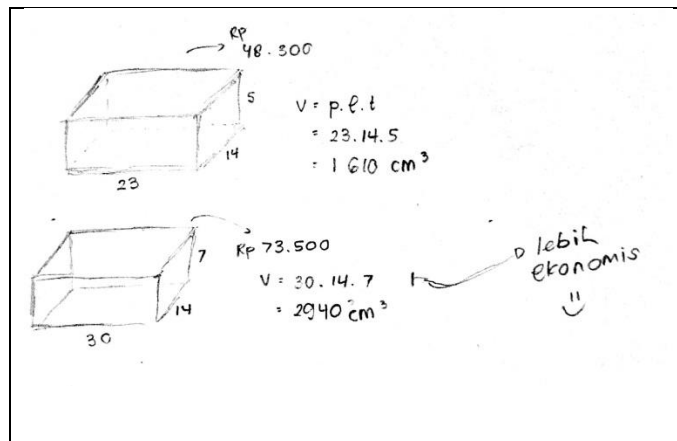 Rp
48.300
5
14
23
V = p.l.t
= 23.14.5
= 1610 cm³
Rp 73.500
7
14
30
V = 30.14.7
= 2940 cm³
lebih
ekonomis